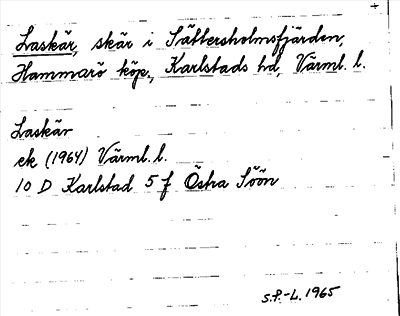 Laskär, skär i Sättersholmsfjärden,
Hammarö köp., Karlstads hd, Värml. l.
Laskär
ek (1964) Värml. l.
10 D Karlstad 5 f Östra Söön
S.P.-L. 1965